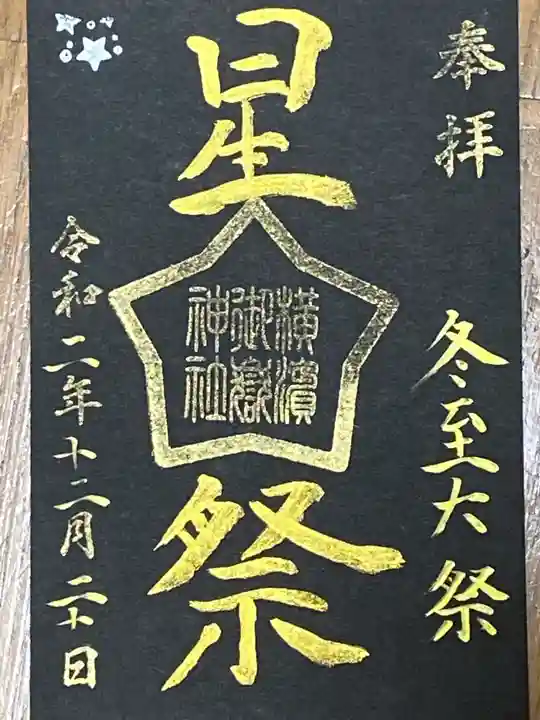 奉拝
冬至大祭
星
横濱
御嶽
神社
祭
令和二年十二月二十日